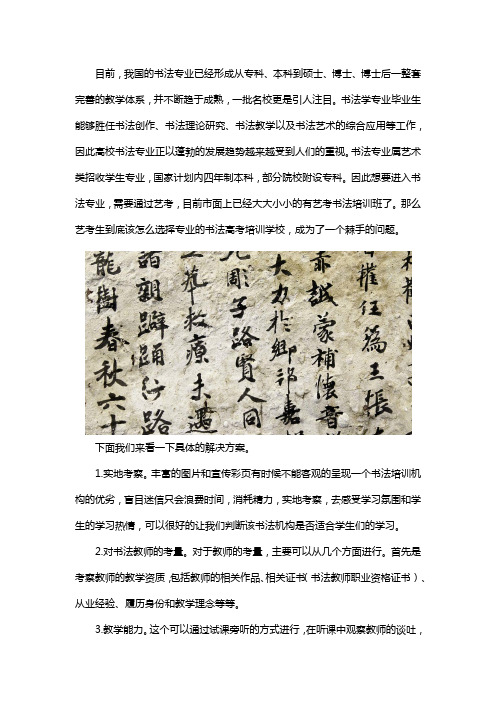 目前，我国的书法专业已经形成从专科、本科到硕士、博士、博士后一整套
完善的教学体系，并不断趋于成熟，一批名校更是引人注目。书法学专业毕业生
能够胜任书法创作、书法理论研究、书法教学以及书法艺术的综合应用等工作，
因此高校书法专业正以蓬勃的发展趋势越来越受到人们的重视。书法专业属艺术
类招收学生专业，国家计划内四年制本科，部分院校附设专科。因此想要进入书
法专业，需要通过艺考，目前市面上已经大大小小的有艺考书法培训班了。那么
艺考生到底该怎么选择专业的书法高考培训学校，成为了一个棘手的问题。
權任為王張
蒙補懷音
大力於鄉
彫子路賢人同
救療未遇
諸親躃踊行路
龍樹春秋六十
下面我们来看一下具体的解决方案。
1.实地考察。丰富的图片和宣传彩页有时候不能客观的呈现一个书法培训机
构的优劣，盲目迷信只会浪费时间，消耗精力，实地考察，去感受学习氛围和学
生的学习热情，可以很好的让我们判断该书法机构是否适合学生们的学习。
2.对书法教师的考量。对于教师的考量，主要可以从几个方面进行。首先是
考察教师的教学资质，包括教师的相关作品、相关证书（书法教师职业资格证书）、
从业经验、履历身份和教学理念等等。
3.教学能力。这个可以通过试课旁听的方式进行，在听课中观察教师的谈吐，